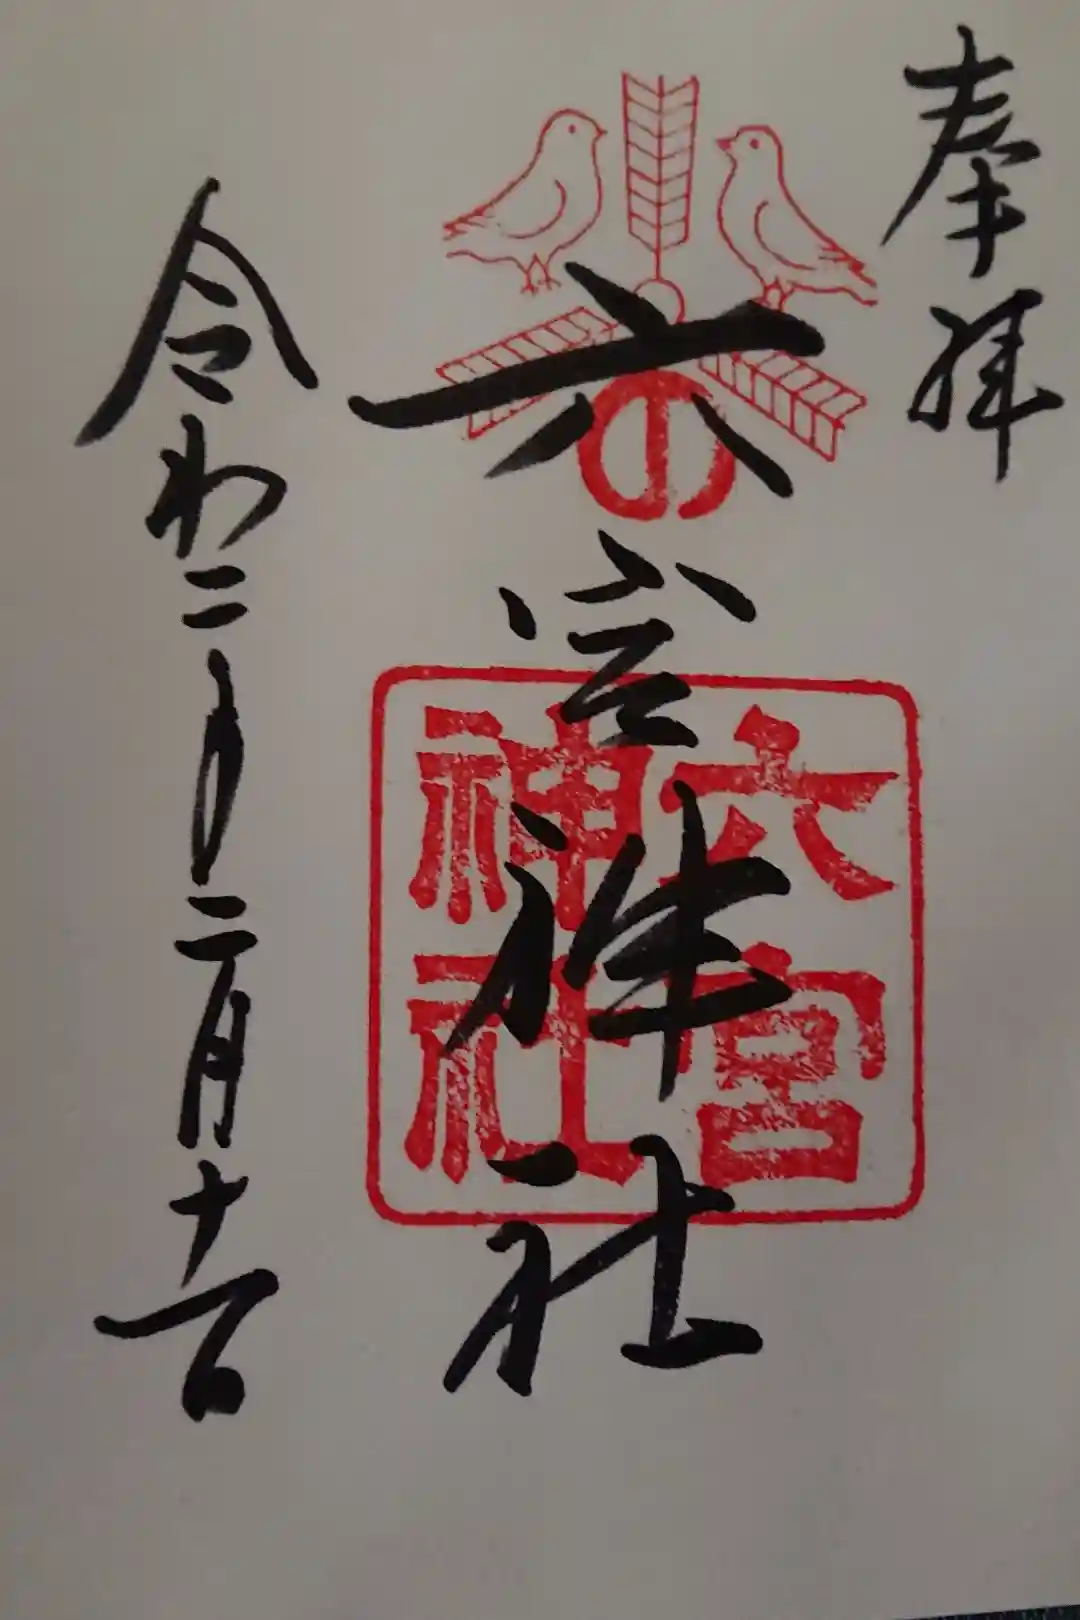 奉拝
の
六宮神社
六宮
神社
令和二年二月十一日